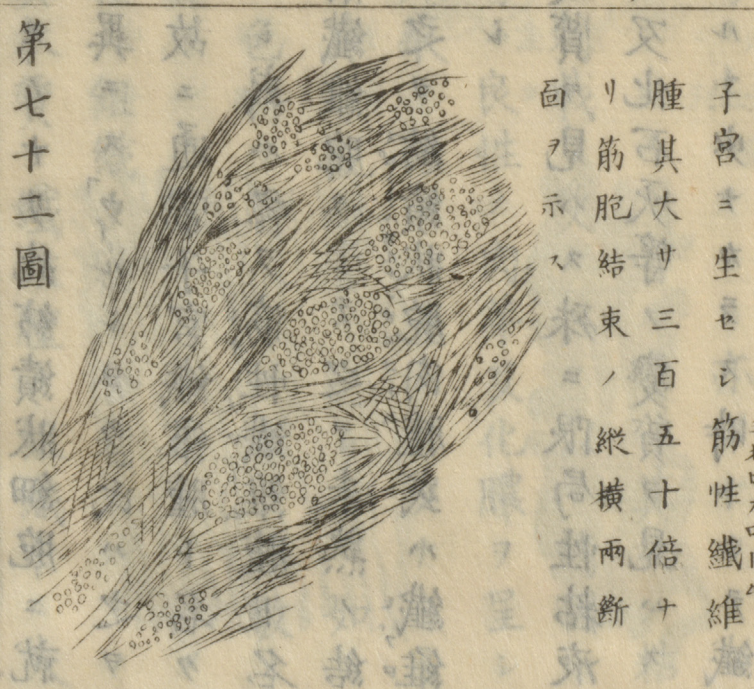 子宮ニ生セシ筋性纖維
腫其大サ三百五十倍ナ
リ筋胞結束ノ縱横兩斷
面ヲ示ス
第七十二圖